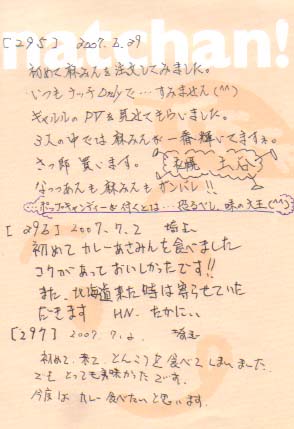 natchan!
[295] 2007.6.29
初めて麻みんを注文してみました。
いつもナッチonlyで…すみません(^^)
ギャルルのPVを見せてもらいました。
3人の中では麻みんが一番輝いてますね。
さっ即買います。
札幌 玉谷
なっつぁんも麻みんもガンバレ!!
ポップキャンディーが付くとは…恐るべし、味の大王(^^)
[296] 2007.7.2 埼玉
初めてカレーあさみんを食べました
コクがあっておいしかったです!!
また、北海道来た時は寄らせていた
だきます HN. たかにぃ
[297] 2007.7.2. 埼玉
初めて来て、とんこつを食べてしまいました。
でも とっても美味かったです。
今度は カレー食べたいと思います.